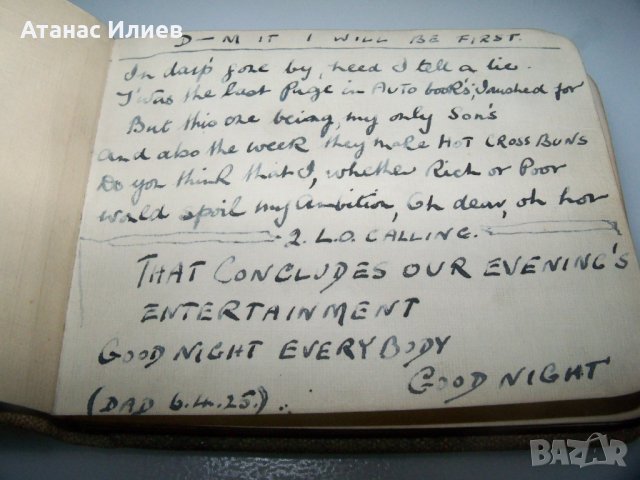 Атанас Илиев
D-M IT I WILL BE FIRST.
In days gone by, need I tell a lie.
T'was the last Page in Auto books, I rushed for
But this one being, my only Son's
And also the week they make HOT CROSS BUNS
Do you think that I, whether Rich or Poor
would spoil my Ambition, Oh dear, oh hor
2. L.O. CALLING.
THAT CONCLUDES OUR EVENING'S
ENTERTAINMENT
GOOD NIGHT EVERYBODY
GOOD NIGHT
(DAD 6.4.25.)
BAZAR